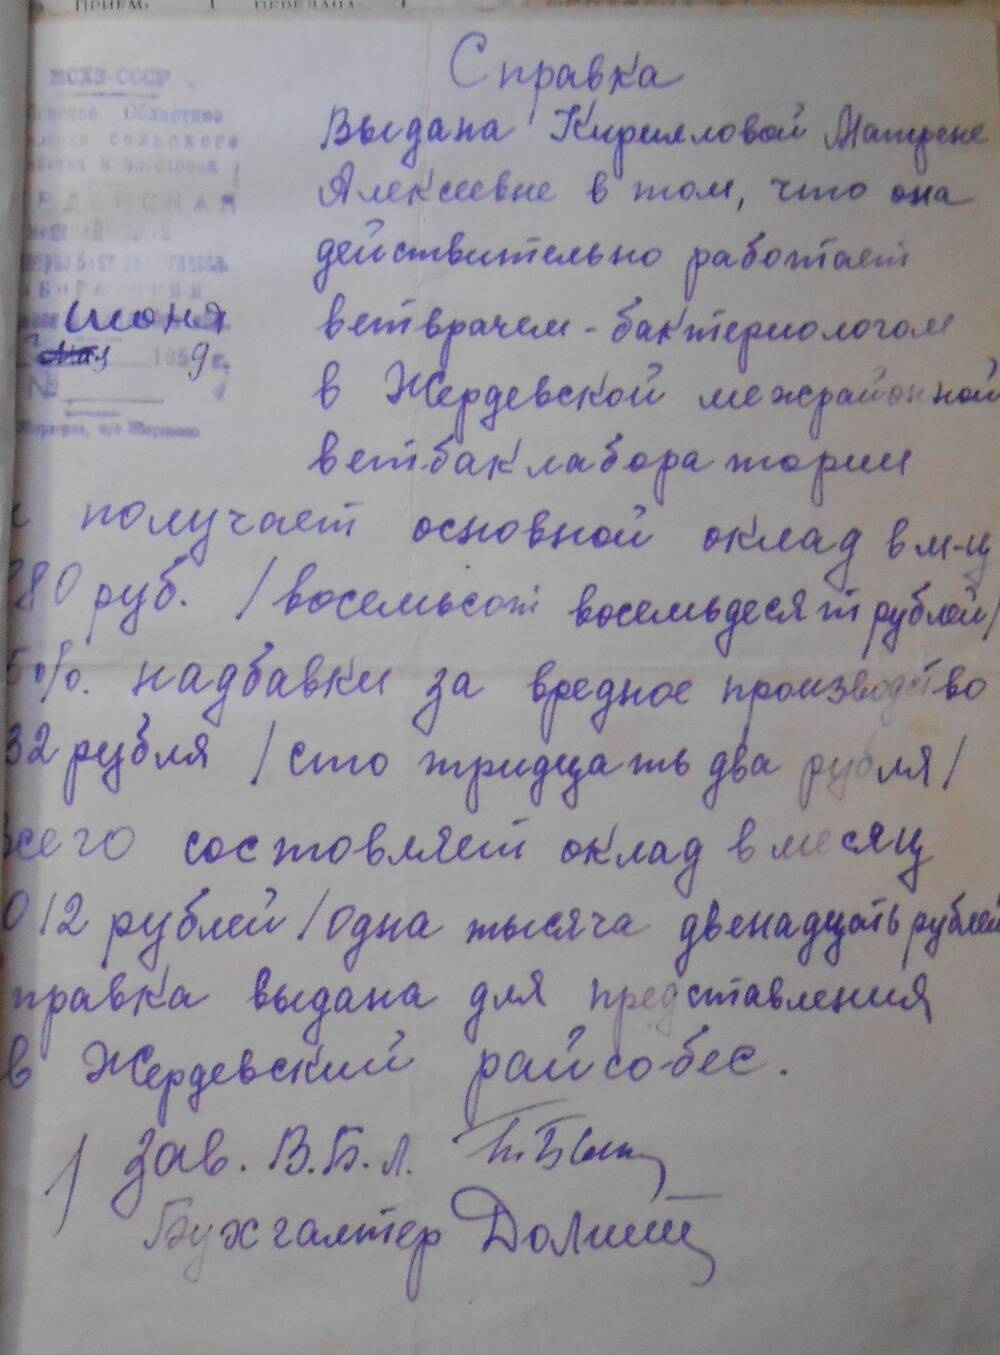 ПРИЕМ ПЕРЕДАЧА
МСХЗ-СССР
Областное
сельского
заготовок
РДЕВСКАЯ
июня
мая 1959 г.
№
Справка
Выдана Кирилловой Матрене
Алексеевне в том, что она
действительно работает
ветврачем-бактериологом
в Жердевской межрайонной
ветбаклаборатории
и получает основной оклад в м-ц
880 руб. /восемьсот восемьдесят рублей/
5%. надбавки за вредное производство
32 рубля /сто тридцать два рубля/
всего состовляет оклад в месяц
012 рублей /одна тысяча двенадцать рублей
правка выдана для представления
в Жердевский райсобес.
Зав. В.Б.л.
Бухгалтер